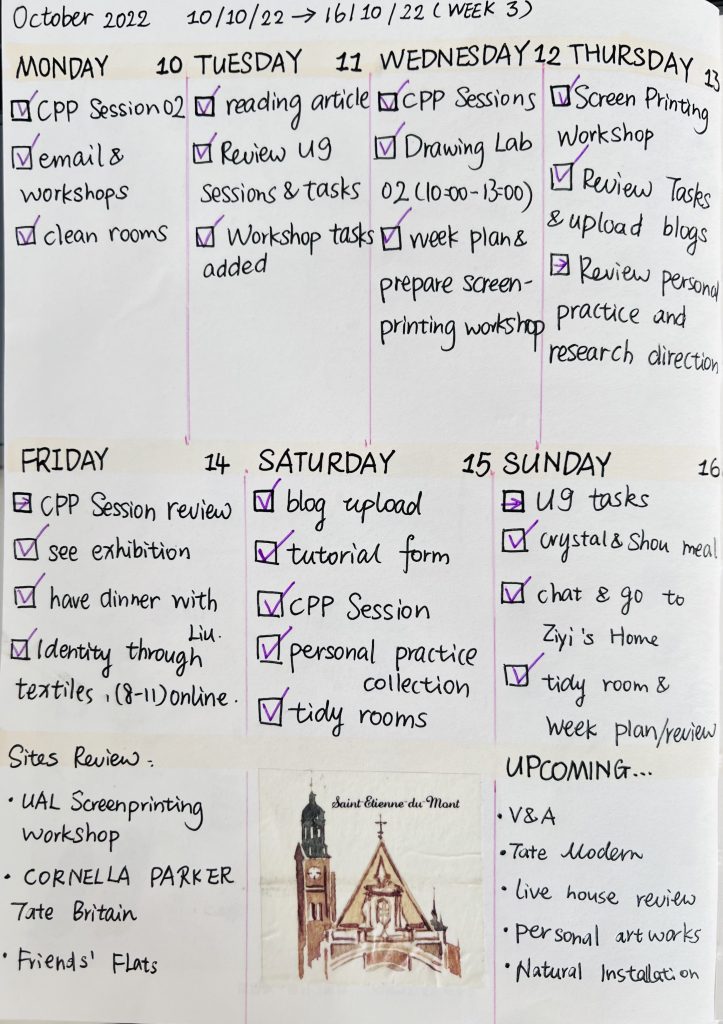 October 2022 10/10/22 → 16/10/22 (WEEK 3)
MONDAY 10
☑ CPP Session 02
☑ email &
workshops
☑ clean rooms
TUESDAY 11
☑ reading article
☑ Review U9
sessions & tasks
☑ Workshop tasks
added
WEDNESDAY 12
☑ CPP Sessions
☑ Drawing Lab
02 (10:00-13:00)
☑ week plan &
prepare screen-
printing workshop
THURSDAY 13
☑ Screen Printing
workshop
☑ Review Tasks
& upload blogs
→ Review personal
practice and
research direction
FRIDAY 14
→ CPP Session review
☑ see exhibition
☑ have dinner with
Liu.
☑ Identity through
textiles, (8-11) online.
SATURDAY 15
☑ blog upload
☑ tutorial form
☑ CPP Session
☑ personal practice
collection
☑ tidy rooms
SUNDAY 16
→ U9 tasks
☑ Crystal & Shou meal
☑ chat & go to
Ziyi's Home
☑ tidy room &
week plan/review
Sites Review:
• UAL Screenprinting
workshop
• CORNELLA PARKER
Tate Britain
• Friends' Flats
Saint Etienne du Mont
UPCOMING...
• V&A
• Tate Modern
• Live house review
• personal artworks
• Natural Installation